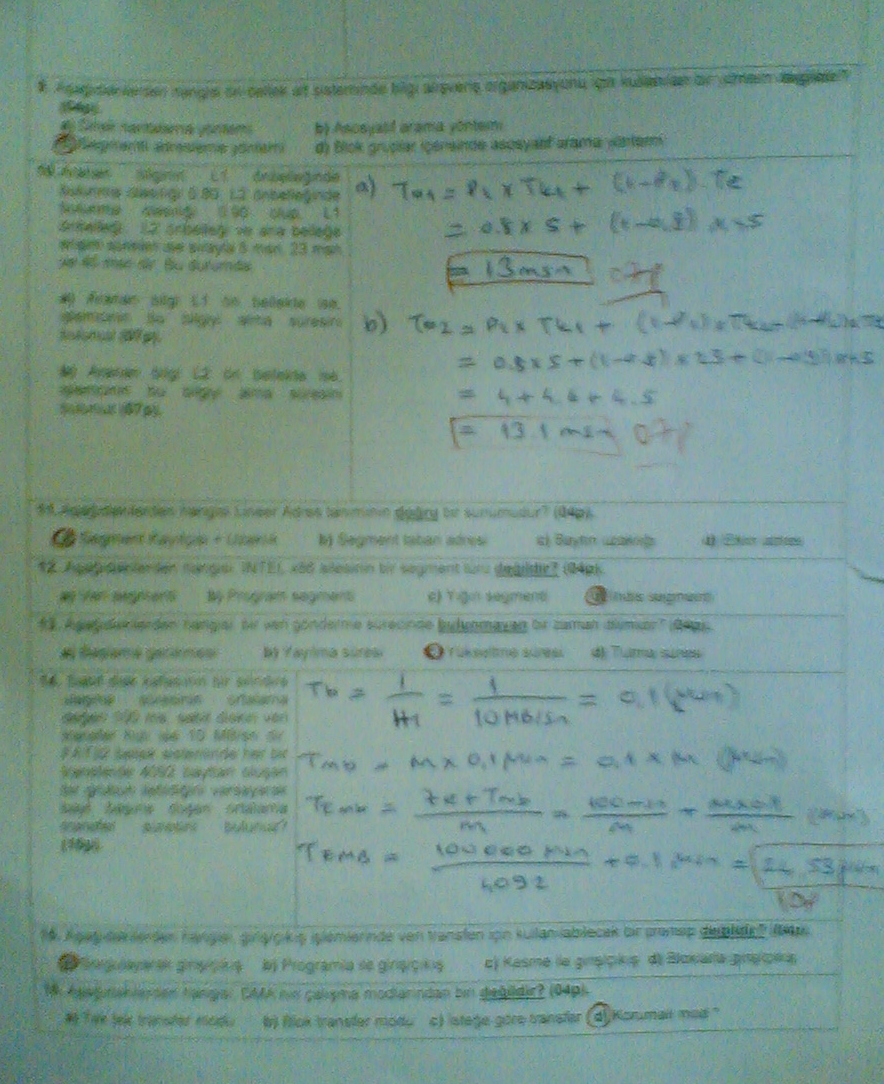 9. Aşağıdakilerden hangisi ön bellek alt sisteminde bilgi alışveriş organizasyonu için kullanılan bir yöntem değildir?
(04p).
a) Direk haritalama yöntemi b) Asosyatif arama yöntemi
c) Segmentli adresleme yöntemi d) Blok gruplar içerisinde asosyatif arama yöntemi
10. Aranan bilginin L1 önbelleğinde
bulunma olasılığı 0.80, L2 önbelleğinde
bulunma olasılığı 0.90 olup, L1
önbelleği, L2 önbelleği ve ana belleğe
erişim süreleri ise sırayla 5 msn, 23 msn
ve 45 msn dir. Bu durumda
a) Aranan bilgi L1 ön bellekte ise,
işlemcinin bu bilgiyi alma süresini
bulunuz (07p).
b) Aranan bilgi L2 ön bellekte ise,
işlemcinin bu bilgiyi alma süresini
bulunuz (07p).
a)
= 0.8 x 5 + (1-0.8) x 45
= 13 msn 07p
b)
= 0.8x5+(1-0.8)x23+(1-0.9)x45
= 4+4.6+4.5
= 13.1 msn 07p
11. Aşağıdakilerden hangisi Lineer Adres tanımının doğru bir sunumudur? (04p).
a) Segment Kayıtçısı + Uzaklık b) Segment taban adresi c) Baytın uzaklığı d) Etkin adres
12. Aşağıdakilerden hangisi INTEL x86 ailesinin bir segment türü değildir? (04p).
a) Veri segmenti b) Program segmenti c) Yığın segmenti d) İndis segmenti
13. Aşağıdakilerden hangisi bir veri gönderme sürecinde bulunmayan bir zaman dilimidir? (04p).
a) Başlama gecikmesi b) Yayılma süresi c) Yükseltme süresi d) Tutma süresi
14. Sabit disk kafasının bir silindire
ulaşma süresinin ortalama
değeri 100 ms, sabit diskin veri
transfer hızı ise 10 MB/sn dir.
FAT32 bellek sisteminde her bir
transferde 4092 bayttan oluşan
bir grubun iletildiğini varsayarak
bayt başına düşen ortalama
transfer süresini bulunuz?
(10p).
Tb = 1/H1 = 1/10MB/sn = 0,1 (μsn)
Tmb = m x 0,1 μsn = 0,1 x m (μsn)
= 100msn/m +
TEMB = 100000 μsn/4092 + 0.1 μsn = 24,53 μsn
10p
15. Aşağıdakilerden hangisi, giriş/çıkış işlemlerinde veri transferi için kullanılabilecek bir prensip değildir? (04p).
a) Sorgulayarak giriş/çıkış b) Programla ile giriş/çıkış c) Kesme ile giriş/çıkış d) Bloklarla giriş/çıkış
16. Aşağıdakilerden hangisi, DMA'nın çalışma modlarından biri değildir? (04p).
a) Tek tek transfer modu b) Blok transfer modu c) İsteğe göre transfer d) Korumalı mod